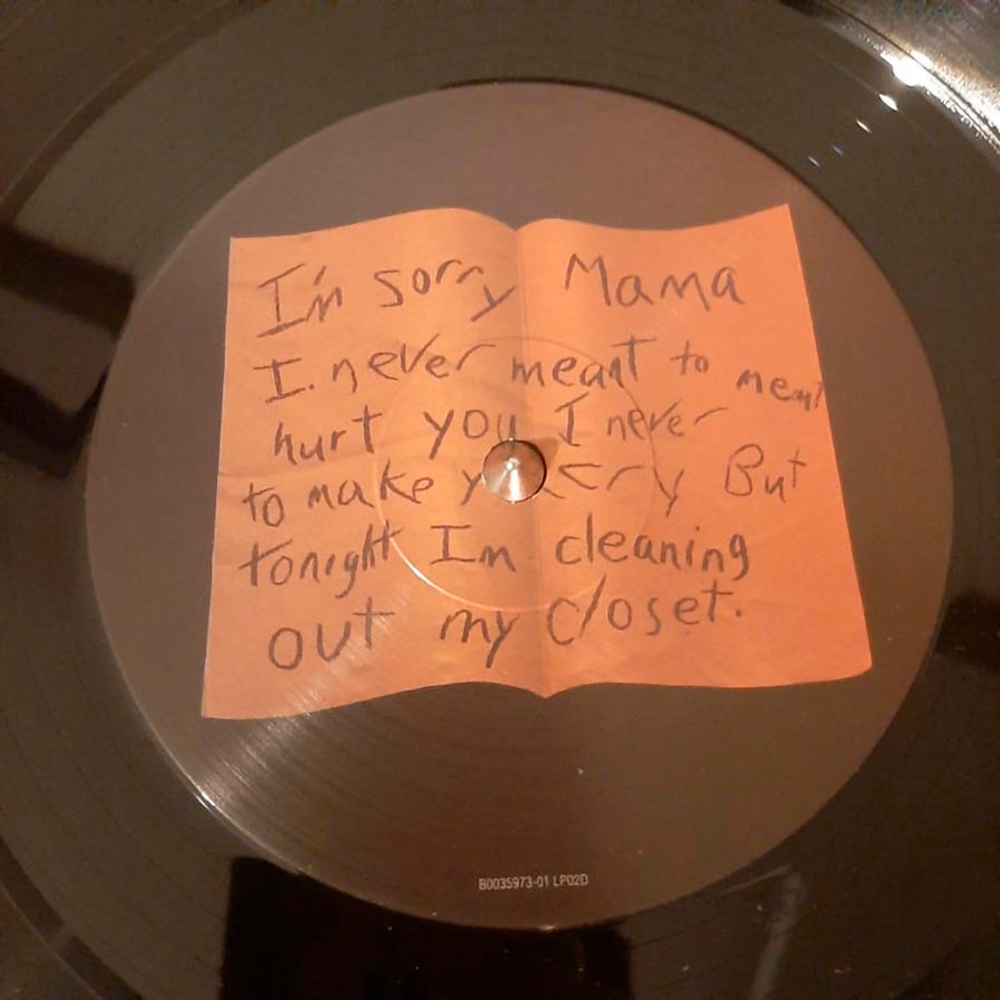 I'm sorry Mama
I. never meant to meant
hurt you I never
to make y cry But
tonight Im cleaning
out my closet.
B0035973-01 LP02D